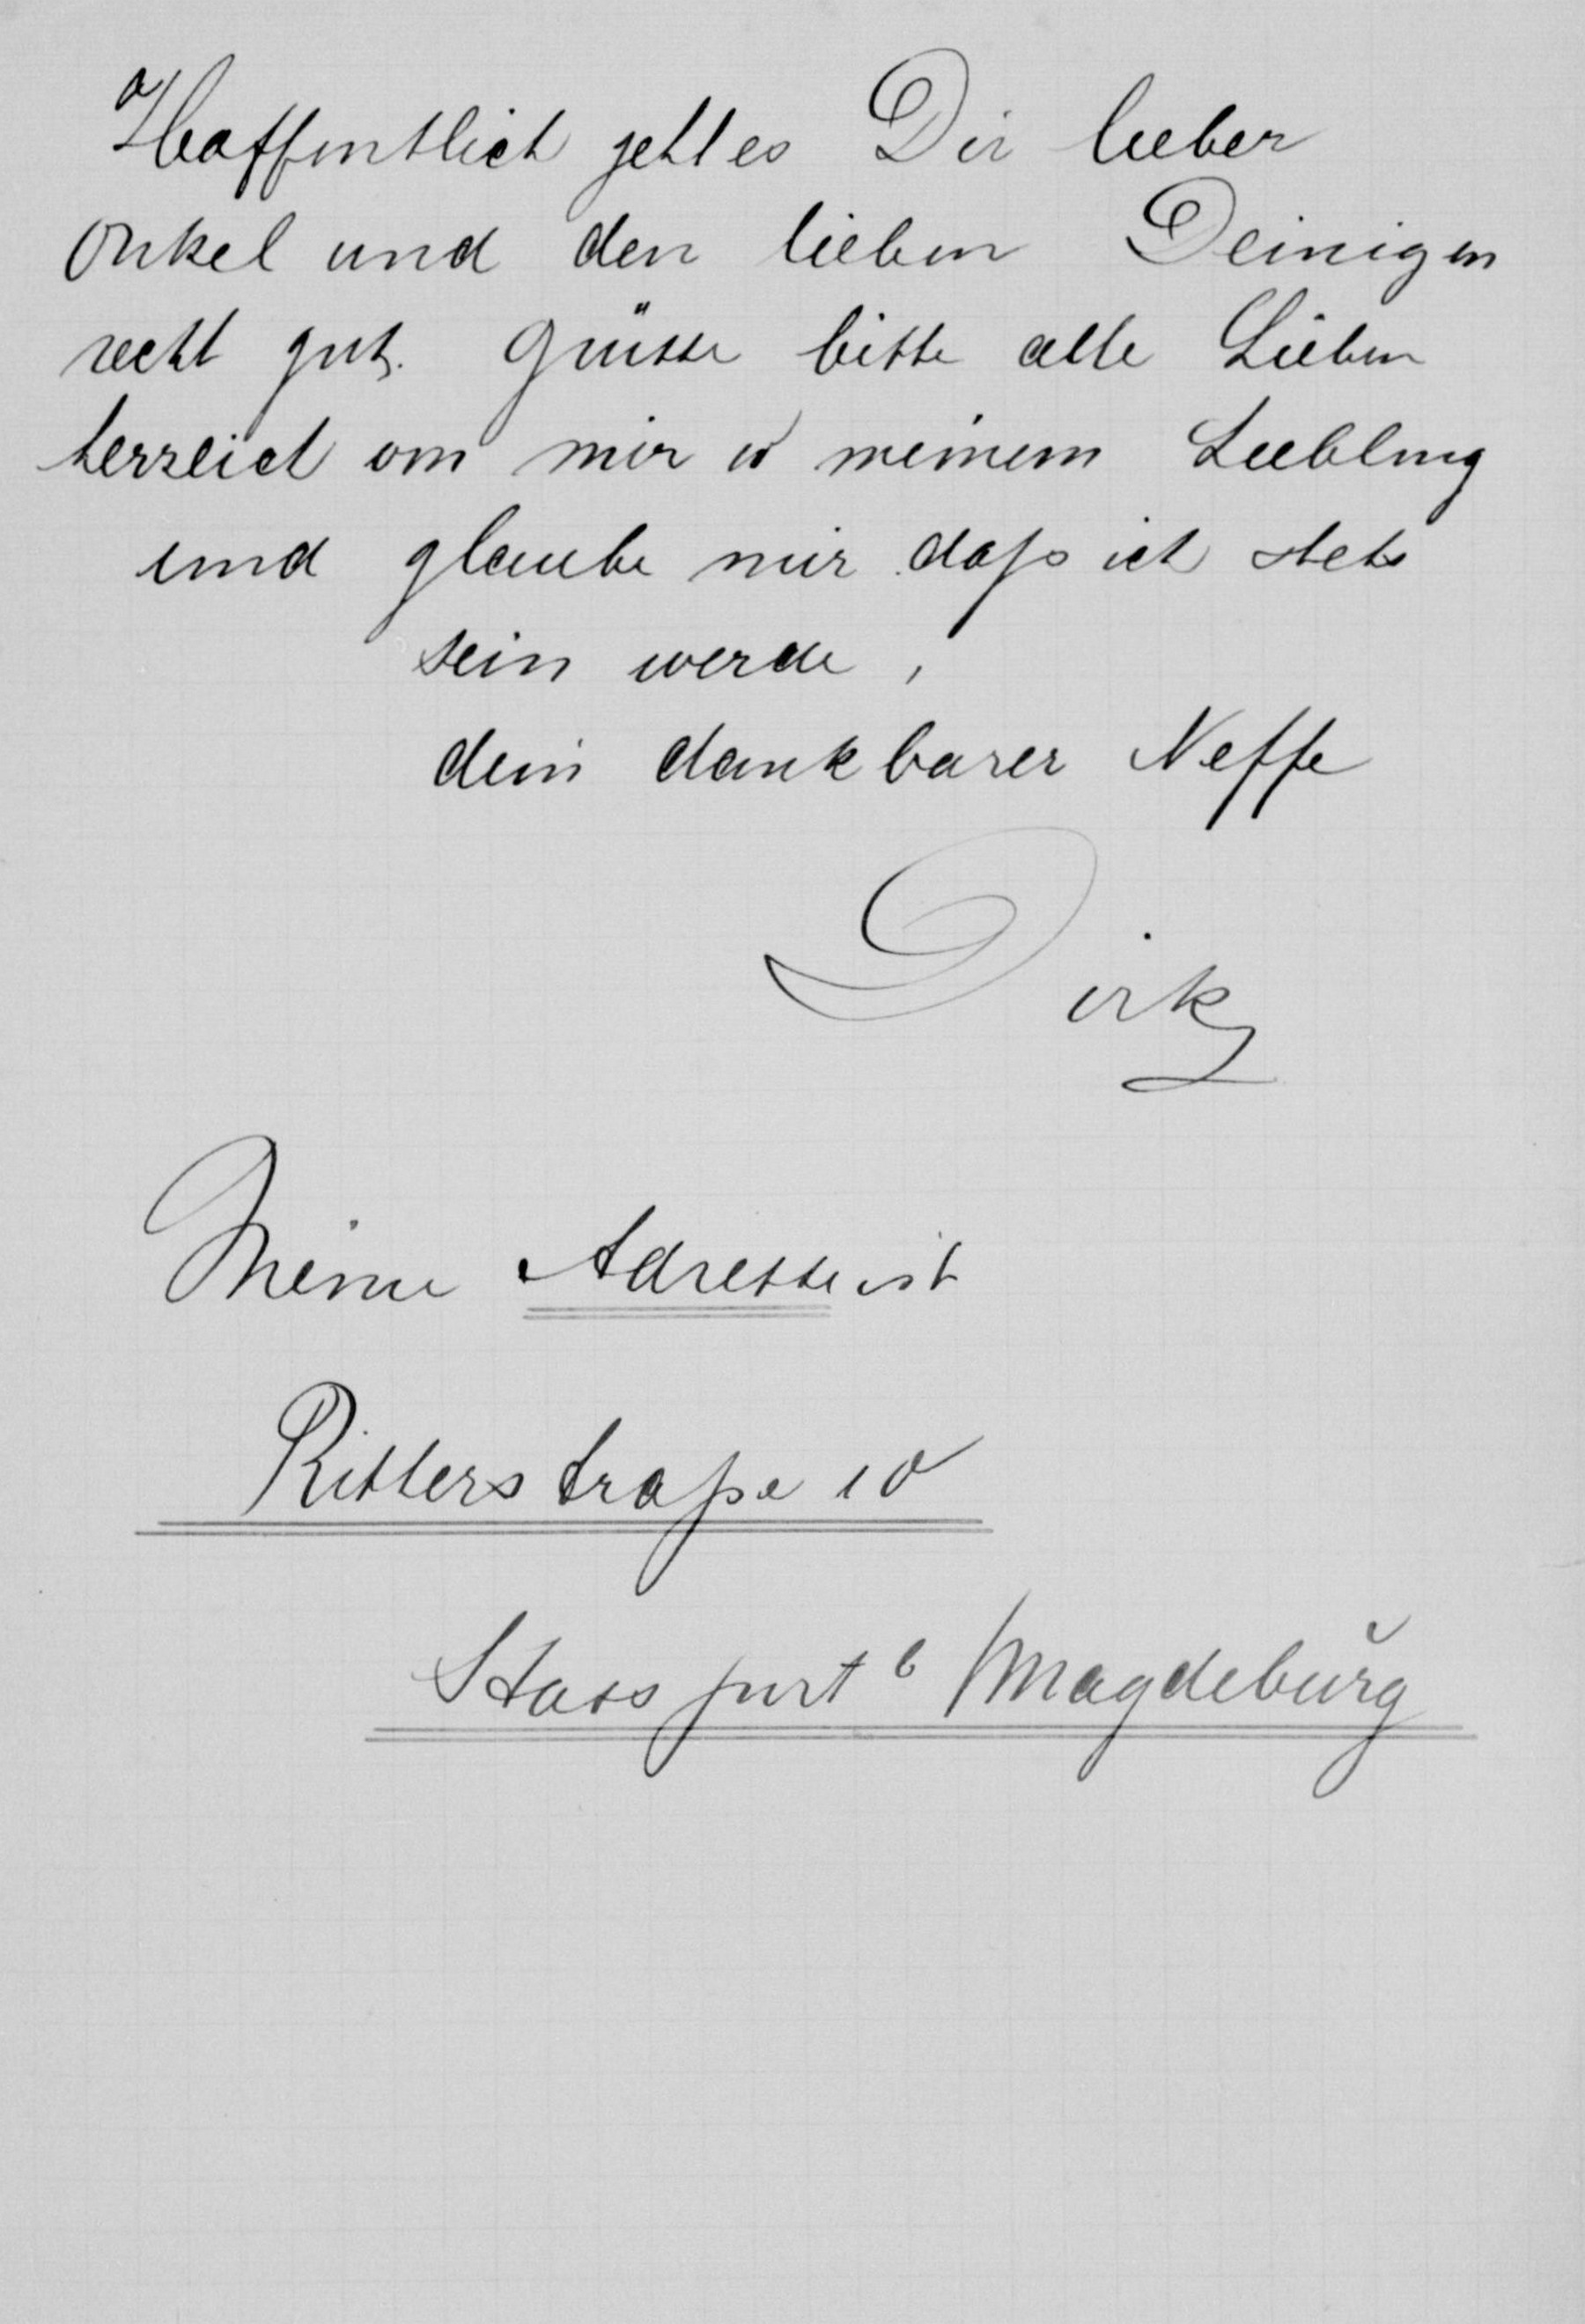 Hoffentlich geht es Dir lieber
Onkel und den lieben Deinigen
recht gut. Grüsse bitte alle Lieben
herzlich von mir u meinem Liebling
und glaube mir daß ich stets
sein werde,
dein dankbarer Neffe
Dirk
Meine Adresse ist
Ritterstraße 10
Stassfurt b Magdeburg